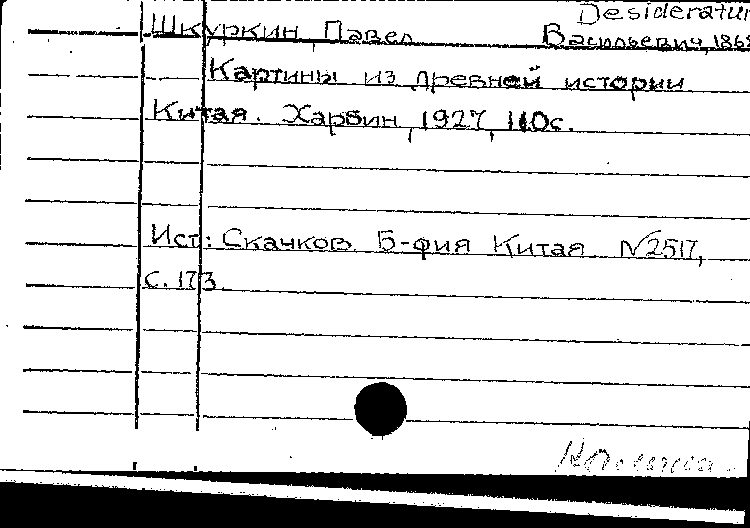 Desideratum
Шкуркин, Павел Васильевич, 1868
Картины из древней истории
Китая. Харбин, 1927, 110с.
Ист: Скачков Б-фия Китая №2517,
с. 173.